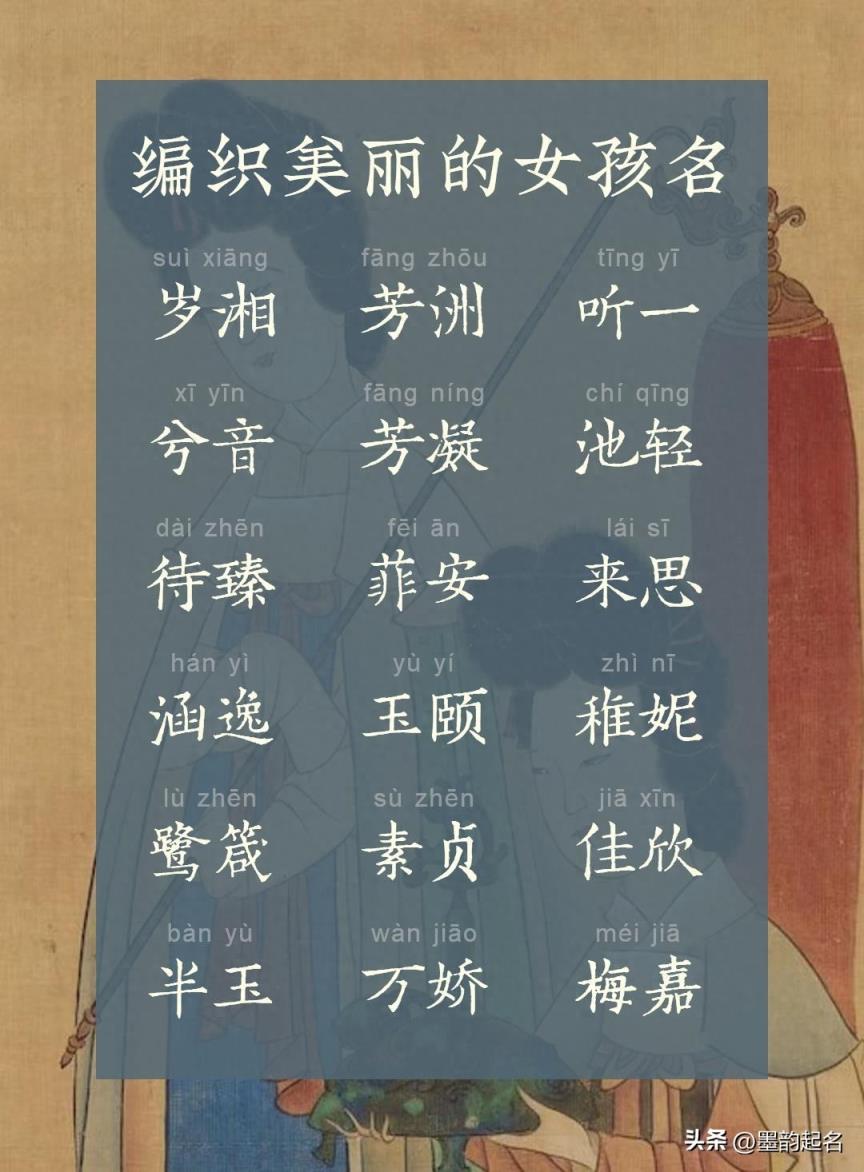 编织美丽的女孩名
suì xiāng fāng zhōu tīng yī
岁湘 芳洲 听一
xī yīn fāng níng chí qīng
兮音 芳凝 池轻
dài zhēn fēi ān lái sī
待臻 菲安 来思
hán yì yù yí zhì nī
涵逸 玉颐 稚妮
lù zhēn sù zhēn jiā xīn
鹭箴 素贞 佳欣
bàn yù wàn jiāo méi jiā
半玉 万娇 梅嘉
头条 @墨韵起名